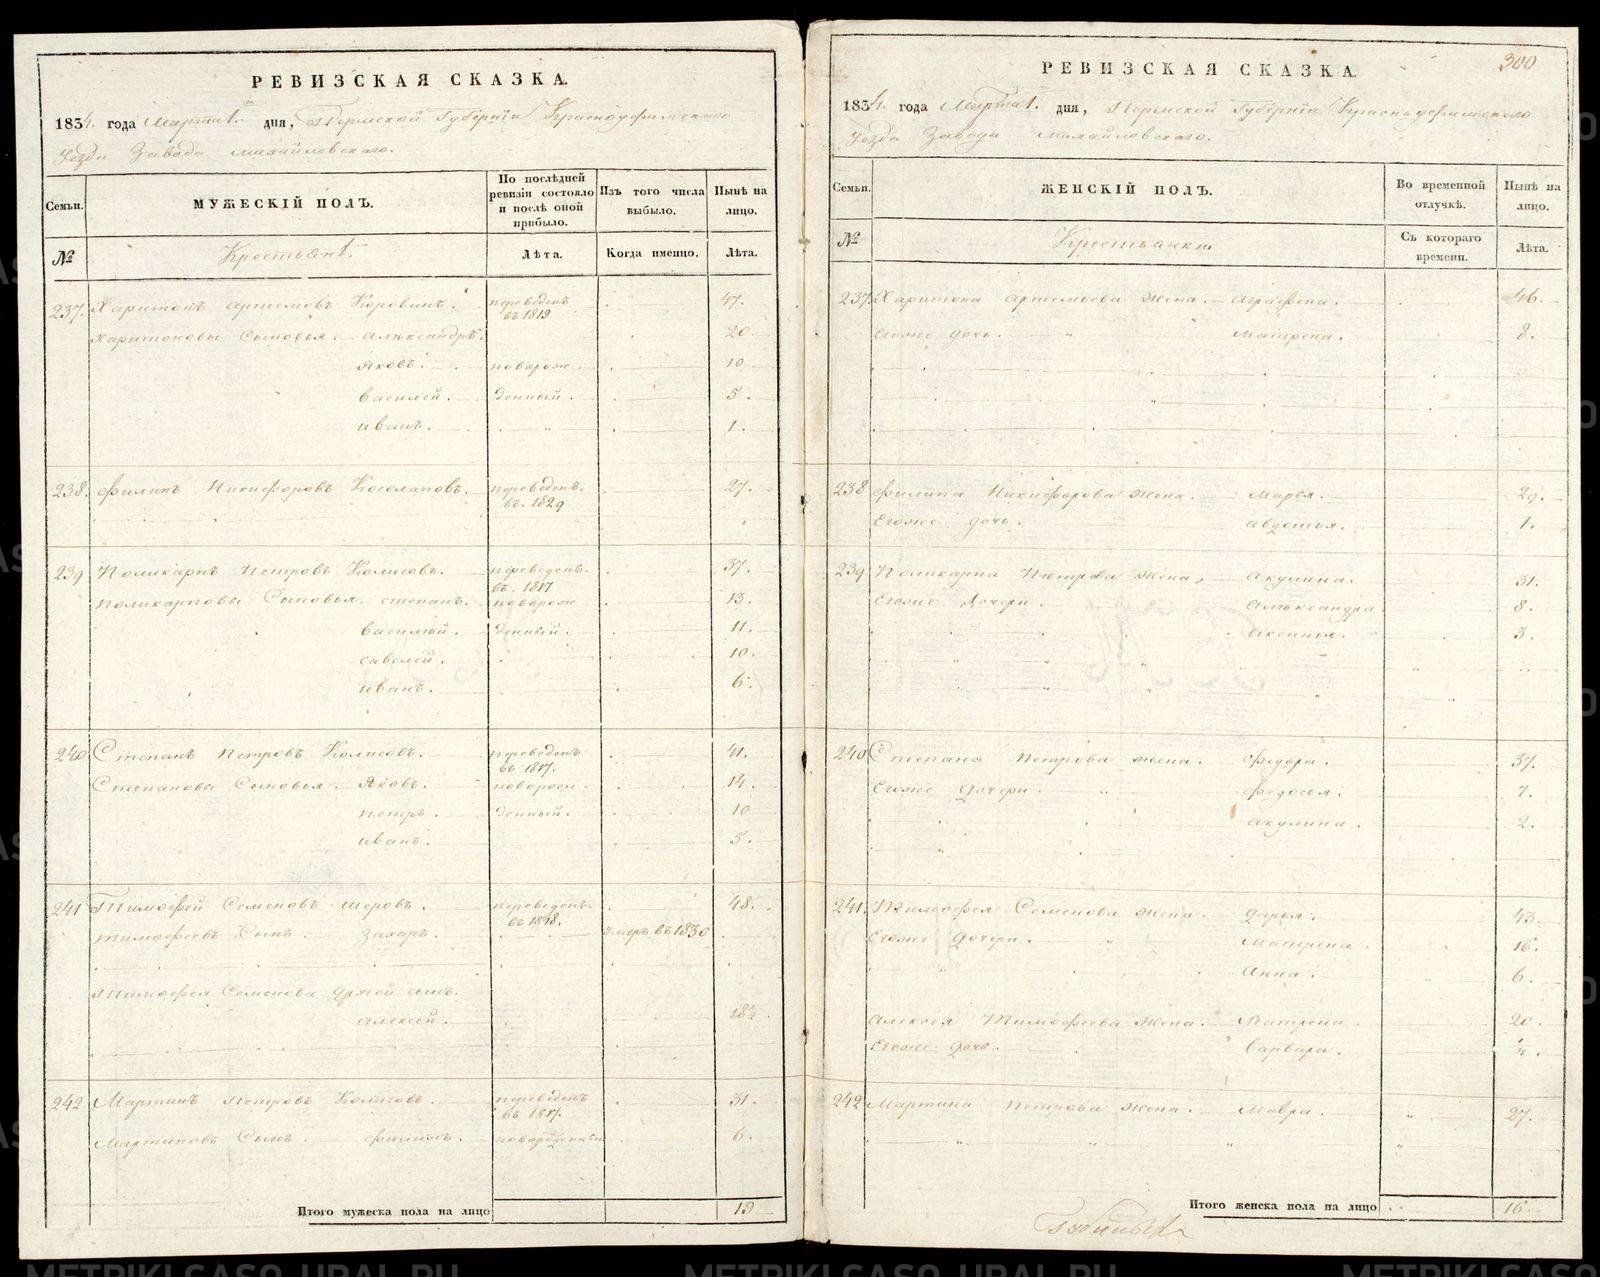 РЕВИЗСКАЯ СКАЗКА.
1834. года Марта 1. дня, Пермской Губернiи Красноуфимскаго
Уезда Завода Михайловскаго.
Семьи.
МУЖЕСКІЙ ПОЛЪ.
По послѣдней ревизіи состояло и послѣ оной прибыло.
Изъ того числа выбыло.
Нынѣ на лицо.
№
Крестьянъ.
Лѣта.
Когда именно.
Лѣта.
237. Харитонъ Артемовъ Коровинъ. переведенъ въ 1819 47.
Харитоновы Сыновья. Александръ. 20
Яковъ. новорож 10
Василей. денный. 5.
Иванъ. 1.
238. Филипъ Никифоровъ Косолаповъ. переведенъ въ 1829 27.
239 Поликарпъ Петровъ Колисовъ. переведенъ въ 1817 37.
Поликарповы Сыновья. Степанъ. новорож 13.
Василей. денный. 11.
Савелей. 10.
Иванъ. 6.
240 Степанъ Петровъ Колисовъ. переведенъ въ 1817. 41.
Степановы Сыновья. Яковъ. новорож. 14.
Петръ. денный. 10
Иванъ. 5.
241 Тимофей Семеновъ Шеровъ. переведенъ въ 1818. 48.
Тимофеевъ Сынъ. Захаръ. умеръ въ 1830
Тимофея Семенова другой сынъ.
Алексей. 18½
242 Мартинъ Петровъ Колисовъ. переведенъ въ 1817. 31.
Мартиновъ Сынъ. Филипъ. новорожденный 6.
Итого мужеска пола на лицо 19
300
РЕВИЗСКАЯ СКАЗКА.
1834. года Марта 1. дня, Пермской Губернiи Красноуфимскаго
Уезда Завода Михайловскаго.
Семьи.
ЖЕНСКІЙ ПОЛЪ.
Во временной отлучкѣ.
Нынѣ на лицо.
№
Крестьянки
Съ котораго времени.
Лѣта.
237. Харитона Артемьева жена. Аграфена. 46.
Егоже дочь. Матрена. 8.
238 Филипа Никифорова жена. Марья. 29.
Егоже дочь. Авдотья. 1.
239 Поликарпа Петрова жена, Акулина. 31.
Егоже дочери. Александра 8.
Аксинья. 3.
240 Степана Петрова жена. Федора. 37.
Егоже дочери. Федосья. 7.
Акулина. 2.
241. Тимофея Семенова жена. Дарья. 43.
Егоже дочери. Матрена. 16.
Анна. 6.
Алексея Тимофеева жена. Матрена. 20.
Егоже дочь. Варвара.
242 Мартина Петрова жена. Мавра. 27.
Итого женска пола на лицо 16
METRIKI.GASO-URAL.RU
METRIKI.GASO-URAL.RU
METRIKI.GASO